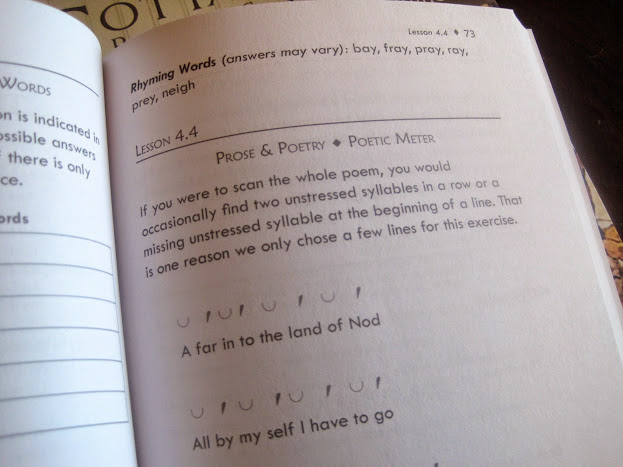 WORDS
on is indicated in
ossible answers
there is only
ce.
ords
Lesson 4.4 ◆ 73
Rhyming Words (answers may vary): bay, fray, pray, ray,
prey, neigh
LESSON 4.4
PROSE & POETRY ◆ POETIC METER
If you were to scan the whole poem, you would
occasionally find two unstressed syllables in a row or a
missing unstressed syllable at the beginning of a line. That
is one reason we only chose a few lines for this exercise.
A far in to the land of Nod
All by my self I have to go